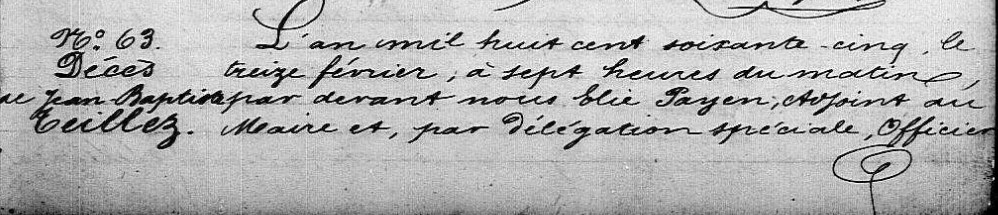 N.° 63.
Décès
de Jean Baptiste
Teillez.
L'an mil huit cent soixante-cinq, le
treize février, à sept heures du matin,
par devant nous Elie Payen, Adjoint au
Maire et, par délégation spéciale, Officier